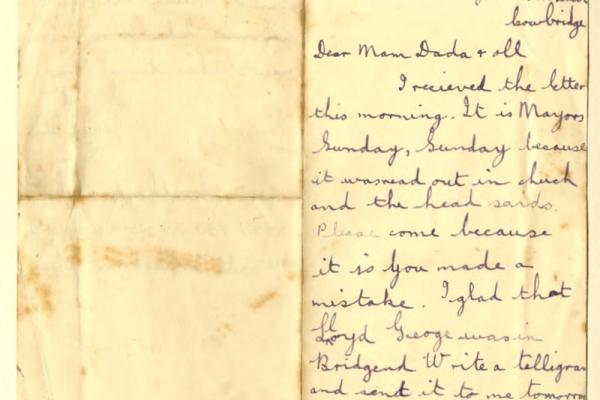 Cowbridge
Dear Mam Dada & all
I recieved the letter
this morning. It is Mayors
Sunday, Sunday because
it wasread out in chuch
and the head sards.
Please come because
it is you made a
mistake. I glad that
Lloyd Geoge was in
Bridgend Write a telligram
and send it to me tomorrow